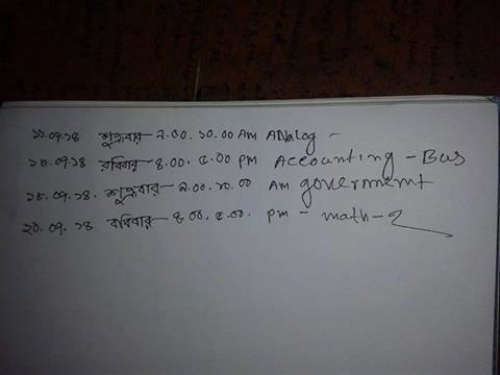 ১১.০৭.১৪ শুক্রবার - ৯.০০. ১০.০০ AM ANalog -
১৩.০৭.১৪ রবিবার - ৪.০০. ৫.০০ PM Accounting - Bus
১৮.০৭.১৪. শুক্রবার - ৯.০০. ১০.০০ AM goverment
২০.০৭.১৪ রবিবার - ৪.০০. ৫.০০. pm - math-2